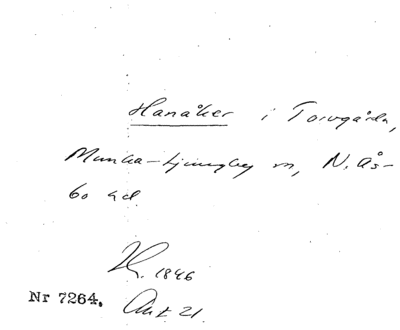 Hanåker i Torvgårda,
Munka-Ljungby sn, N. Ås-
bo hd.
1846
Nr 7264. Akt 21.